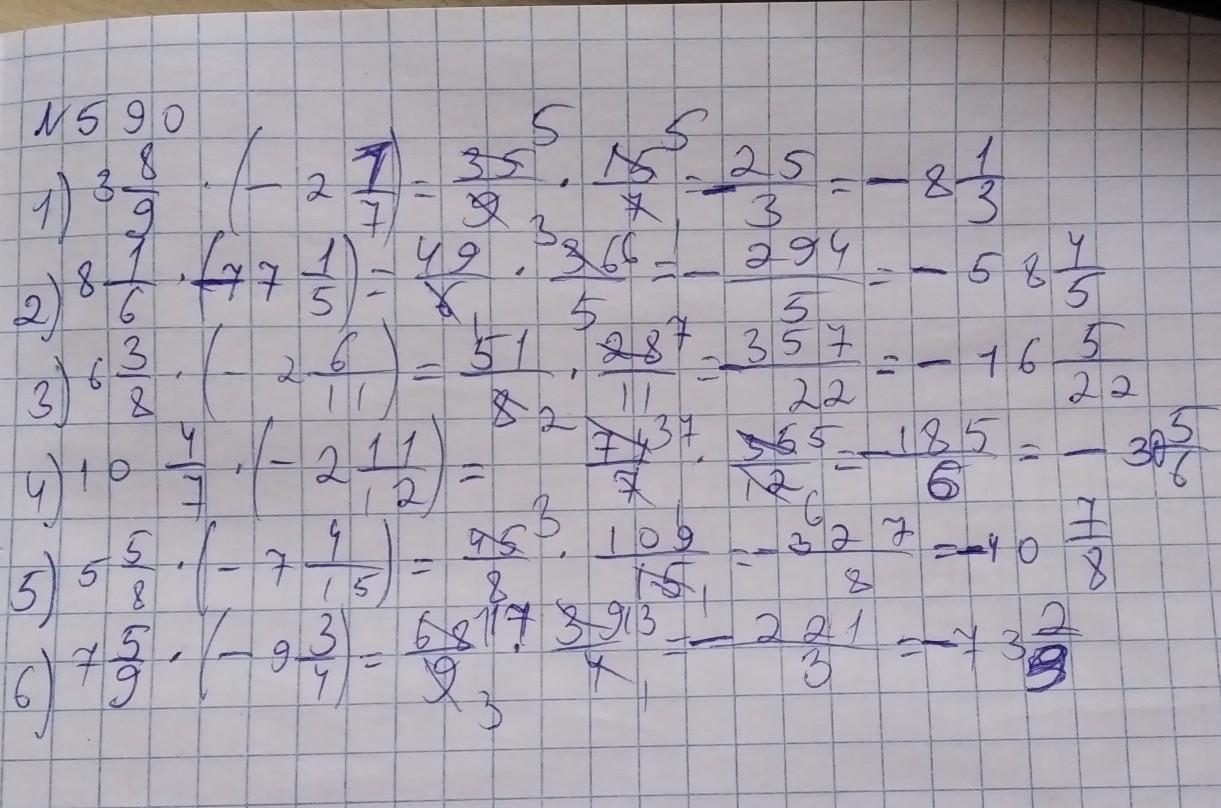 N 590
1) 3 8/9 · (- 2 1/7) = 35/9 · 15/7 = - 25/3 = - 8 1/3
2) 8 1/6 · (-7 7 1/5) = 49/6 · 366/5 = - 294/5 = - 58 4/5
3) 6 3/8 · (- 2 6/11) = 51/8 · 28/11 = - 357/22 = - 16 5/22
4) 10 4/7 · (- 2 11/12) = 74/7 · 35/12 = - 185/6 = - 30 5/6
5) 5 5/8 · (- 7 4/15) = 45/8 · 109/15 = - 327/8 = - 40 7/8
6) 7 5/9 · (- 9 3/4) = 68/9 · 39/4 = - 221/3 = - 73 2/3